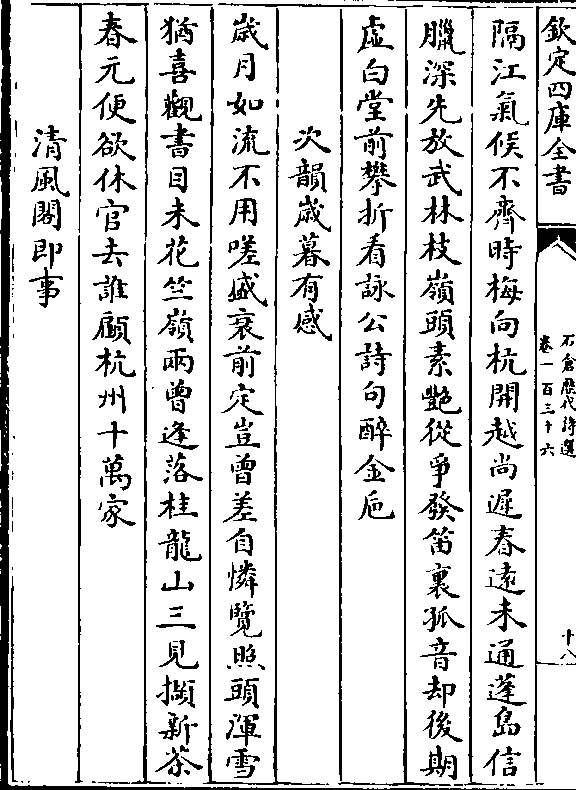 欽定四庫全書
石倉歴代詩選
卷一百三十六
十八
隔江氣候不齊時梅向杭開越尚遲春逺未通蓬島信
臘深先放武林枝嶺頭素艶從爭發笛裏孤音却後期
虛白堂前攀折看詠公詩句醉金巵
次韻歳暮有感
歳月如流不用嗟盛衰前定豈曾差自憐覽照頭渾雪
猶喜觀書目未花竺嶺兩曾逢落桂龍山三見擷新茶
春元便欲休官去誰顧杭州十萬家
清風閣即事